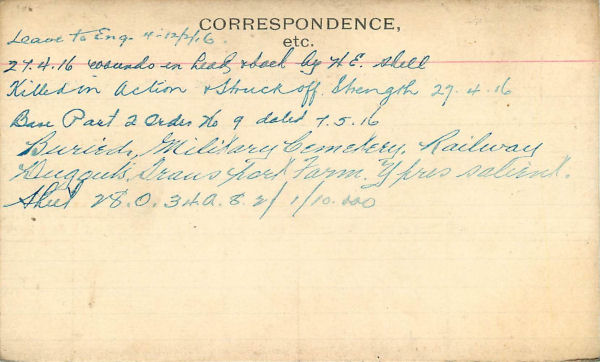 CORRESPONDENCE,
etc.
Leave to Eng. 4-12/2/16.
27.4.16 wounds in head, & back by H.E. Shell
Killed in Action & Struck off Strength 27.4.16
Base Part 2 Order No 9 dated 7.5.16
Buried, Military Cemetery, Railway
Dugouts, Transport Farm. Ypres salient.
Sheet 28.O.34.a.8.2/ 1/10.000